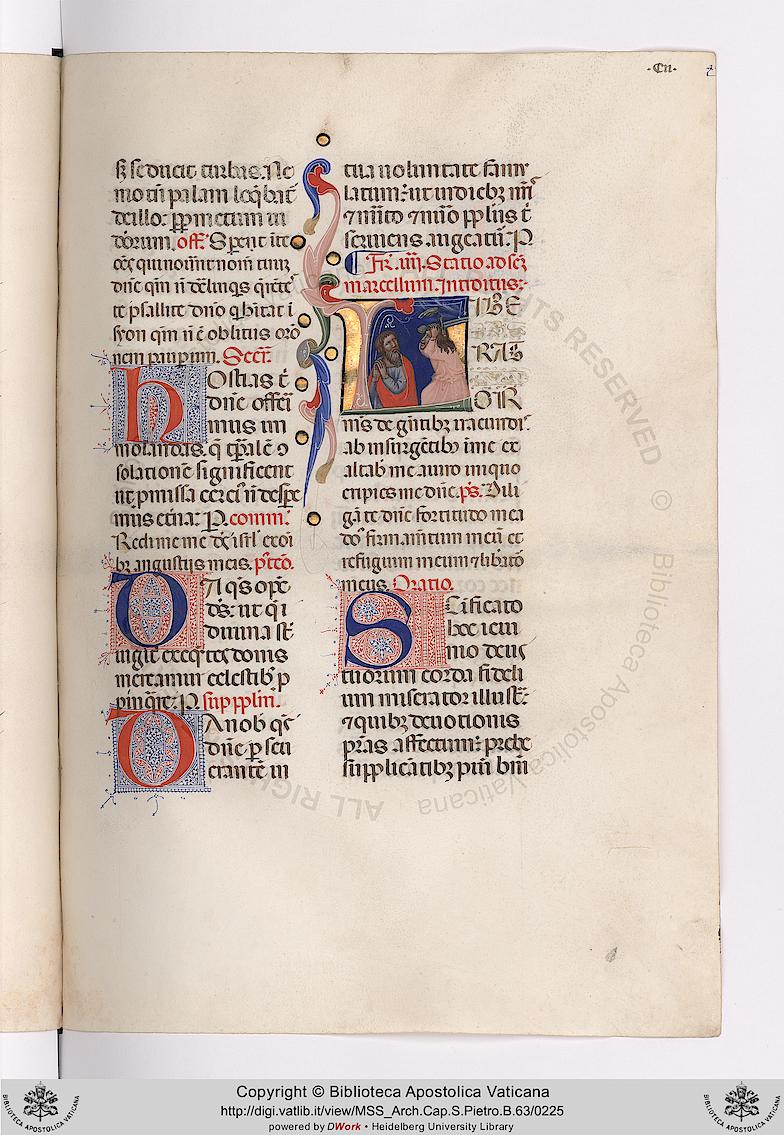 ·Cii·
s seducit turbas. Ne
mo tn palam loqbat
de illo: ppt metum iu
deorum. off. Sperent i te
oes qui noverunt nom tuum
dne qm n derelinqs querentes
te psallite dno q habitat i
syon qm n e oblitus oro
nem paupum. Secr.
Hostias t
dne offeri
mus im
molandas. q tpale 9
solatione significent
ut pmissa certi n despe
mus eterna: P. comm.
Redime me ds isrl ex oi
bz angustiis meis. pt co.
DA qs ops
ds: ut q i
diuina st
ungit exequentes donis
mereamur celestibz p
pinqre: P. sup pplm.
DA nob qs
dne pseu
erante in
tua uoluntate famu
latum: ut in diebz nris
7 mito 7 nuo ppls t
seruiens augeatur: P
Fr. iiii. Statio ad scm
marcellum. Introitus:
LIBE
RAT
OR
ms de gentibz iracundis
ab insurgentibz i me ex
altabis me a uiro iniquo
eripies me dne. ps. Dili
ga te dne fortitudo mea
dns firmamtum meu et
refugium meum 7 liberator
meus. Oratio.
Scificato
hoc ieiu
nio deus
tuorum corda fideli
um miserator illustra:
7 quibz deuotionis
pstas affectum: prebe
supplicantibz pium bnn
ALL RIGHTS RESERVED © Biblioteca Apostolica Vaticana
Copyright © Biblioteca Apostolica Vaticana
http://digi.vatlib.it/view/MSS_Arch.Cap.S.Pietro.B.63/0225
powered by DWork • Heidelberg University Library
BIBLIOTECA APOSTOLICA VATICANA
BIBLIOTECA APOSTOLICA VATICANA